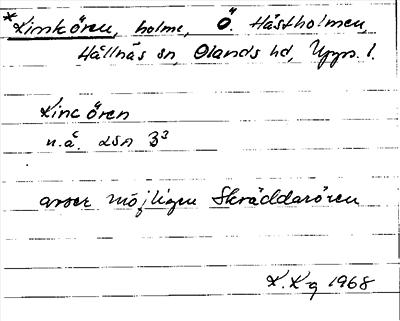 *Linkören, holme, Ö. Hästholmen,
Hållnäs sn, Olands hd, Upps. l.
Linc ören
n.å. LSA B3
avser möjligen Skräddarören
K.Kg 1968